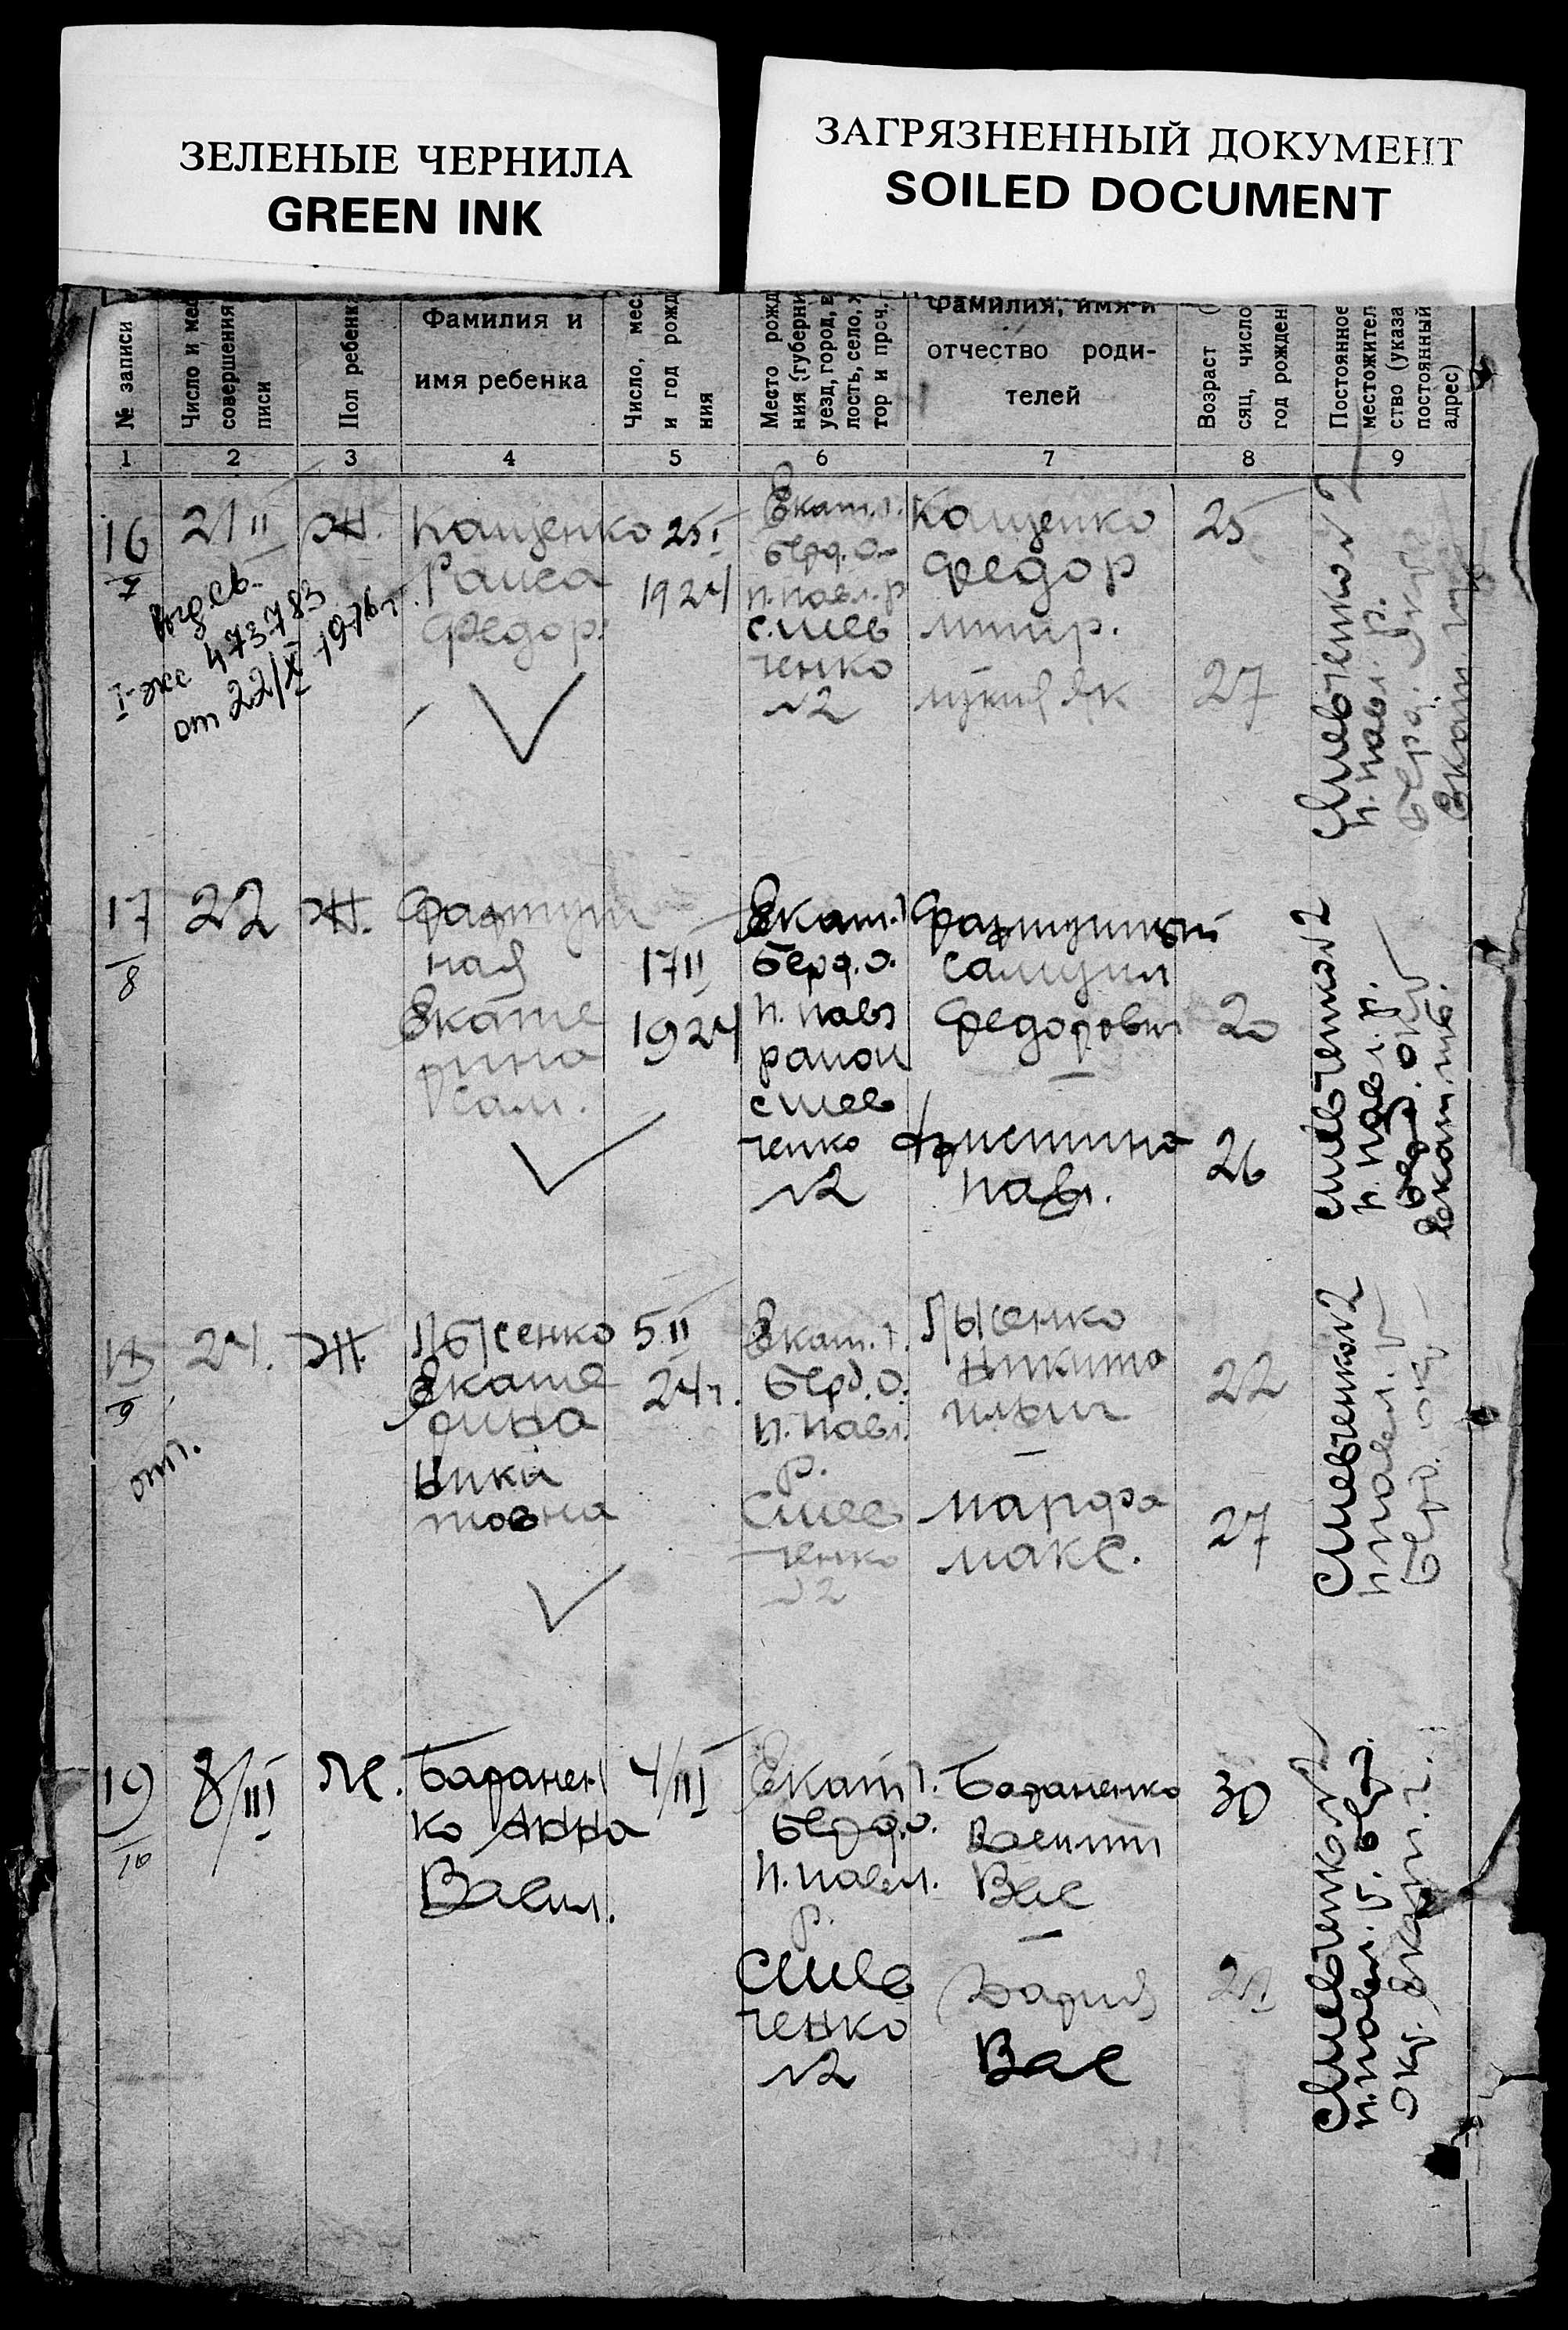 ЗЕЛЕНЫЕ ЧЕРНИЛА
GREEN INK
ЗАГРЯЗНЕННЫЙ ДОКУМЕНТ
SOILED DOCUMENT
№ записи
Число и мес
совершения
писи
Пол ребенк
Фамилия и
имя ребенка
Число, мес.
и год рожд
ния
Место рожд
ния (губерни
уезд, город,
лость, село, х
тор и проч.
Фамилия, имя и
отчество роди-
телей
Возраст (
сяц, число
год рожден
Постоянное
местожител
ство (указа
постоянный
адрес)
1 2 3 4 5 6 7 8 9
16
7
21 II
Ж.
Кащенко
Раиса
Федор.
25 I
1924
Екат. г.
Берд. о.
н. павл. р
с. Шев
ченко
№2
Кащенко
Федор
25
27
Шевченко №2
н. павл. р.
473783
от 22/X 1976 г.
17
8
22
Ж.
ная
Екате
рина
Сам.
17 II
1924
Екат. г
Берд. о.
н. павл
район
с Шев
ченко
№2
Самуил
Федорович
20
Христина
Павл.
26
Шевченко №2
н. павл. р.
Берд. окр
Екат. губ.
9
отл.
24.
Ж.
Лысенко
Екате
рина
Ники
товна
5 II
24 г.
Екат. г.
Берд. о.
н. павл.
р.
с Шев
ченко
№2
Лысенко
Никита
Ильич
22
Марфа
Макс.
27
Шевченко №2
н павл. р
Берд. окр
19
10
8/III
Ж.
Баранен
ко Анна
Васил.
4/III
Екат г.
Берд. о.
н. павл.
р.
с Шев
ченко
№2
Бараненко
Василий
Вас
30
Дария
Вас
Шевченко №2
н. павл. р. Берд.
окр. Екат. г.